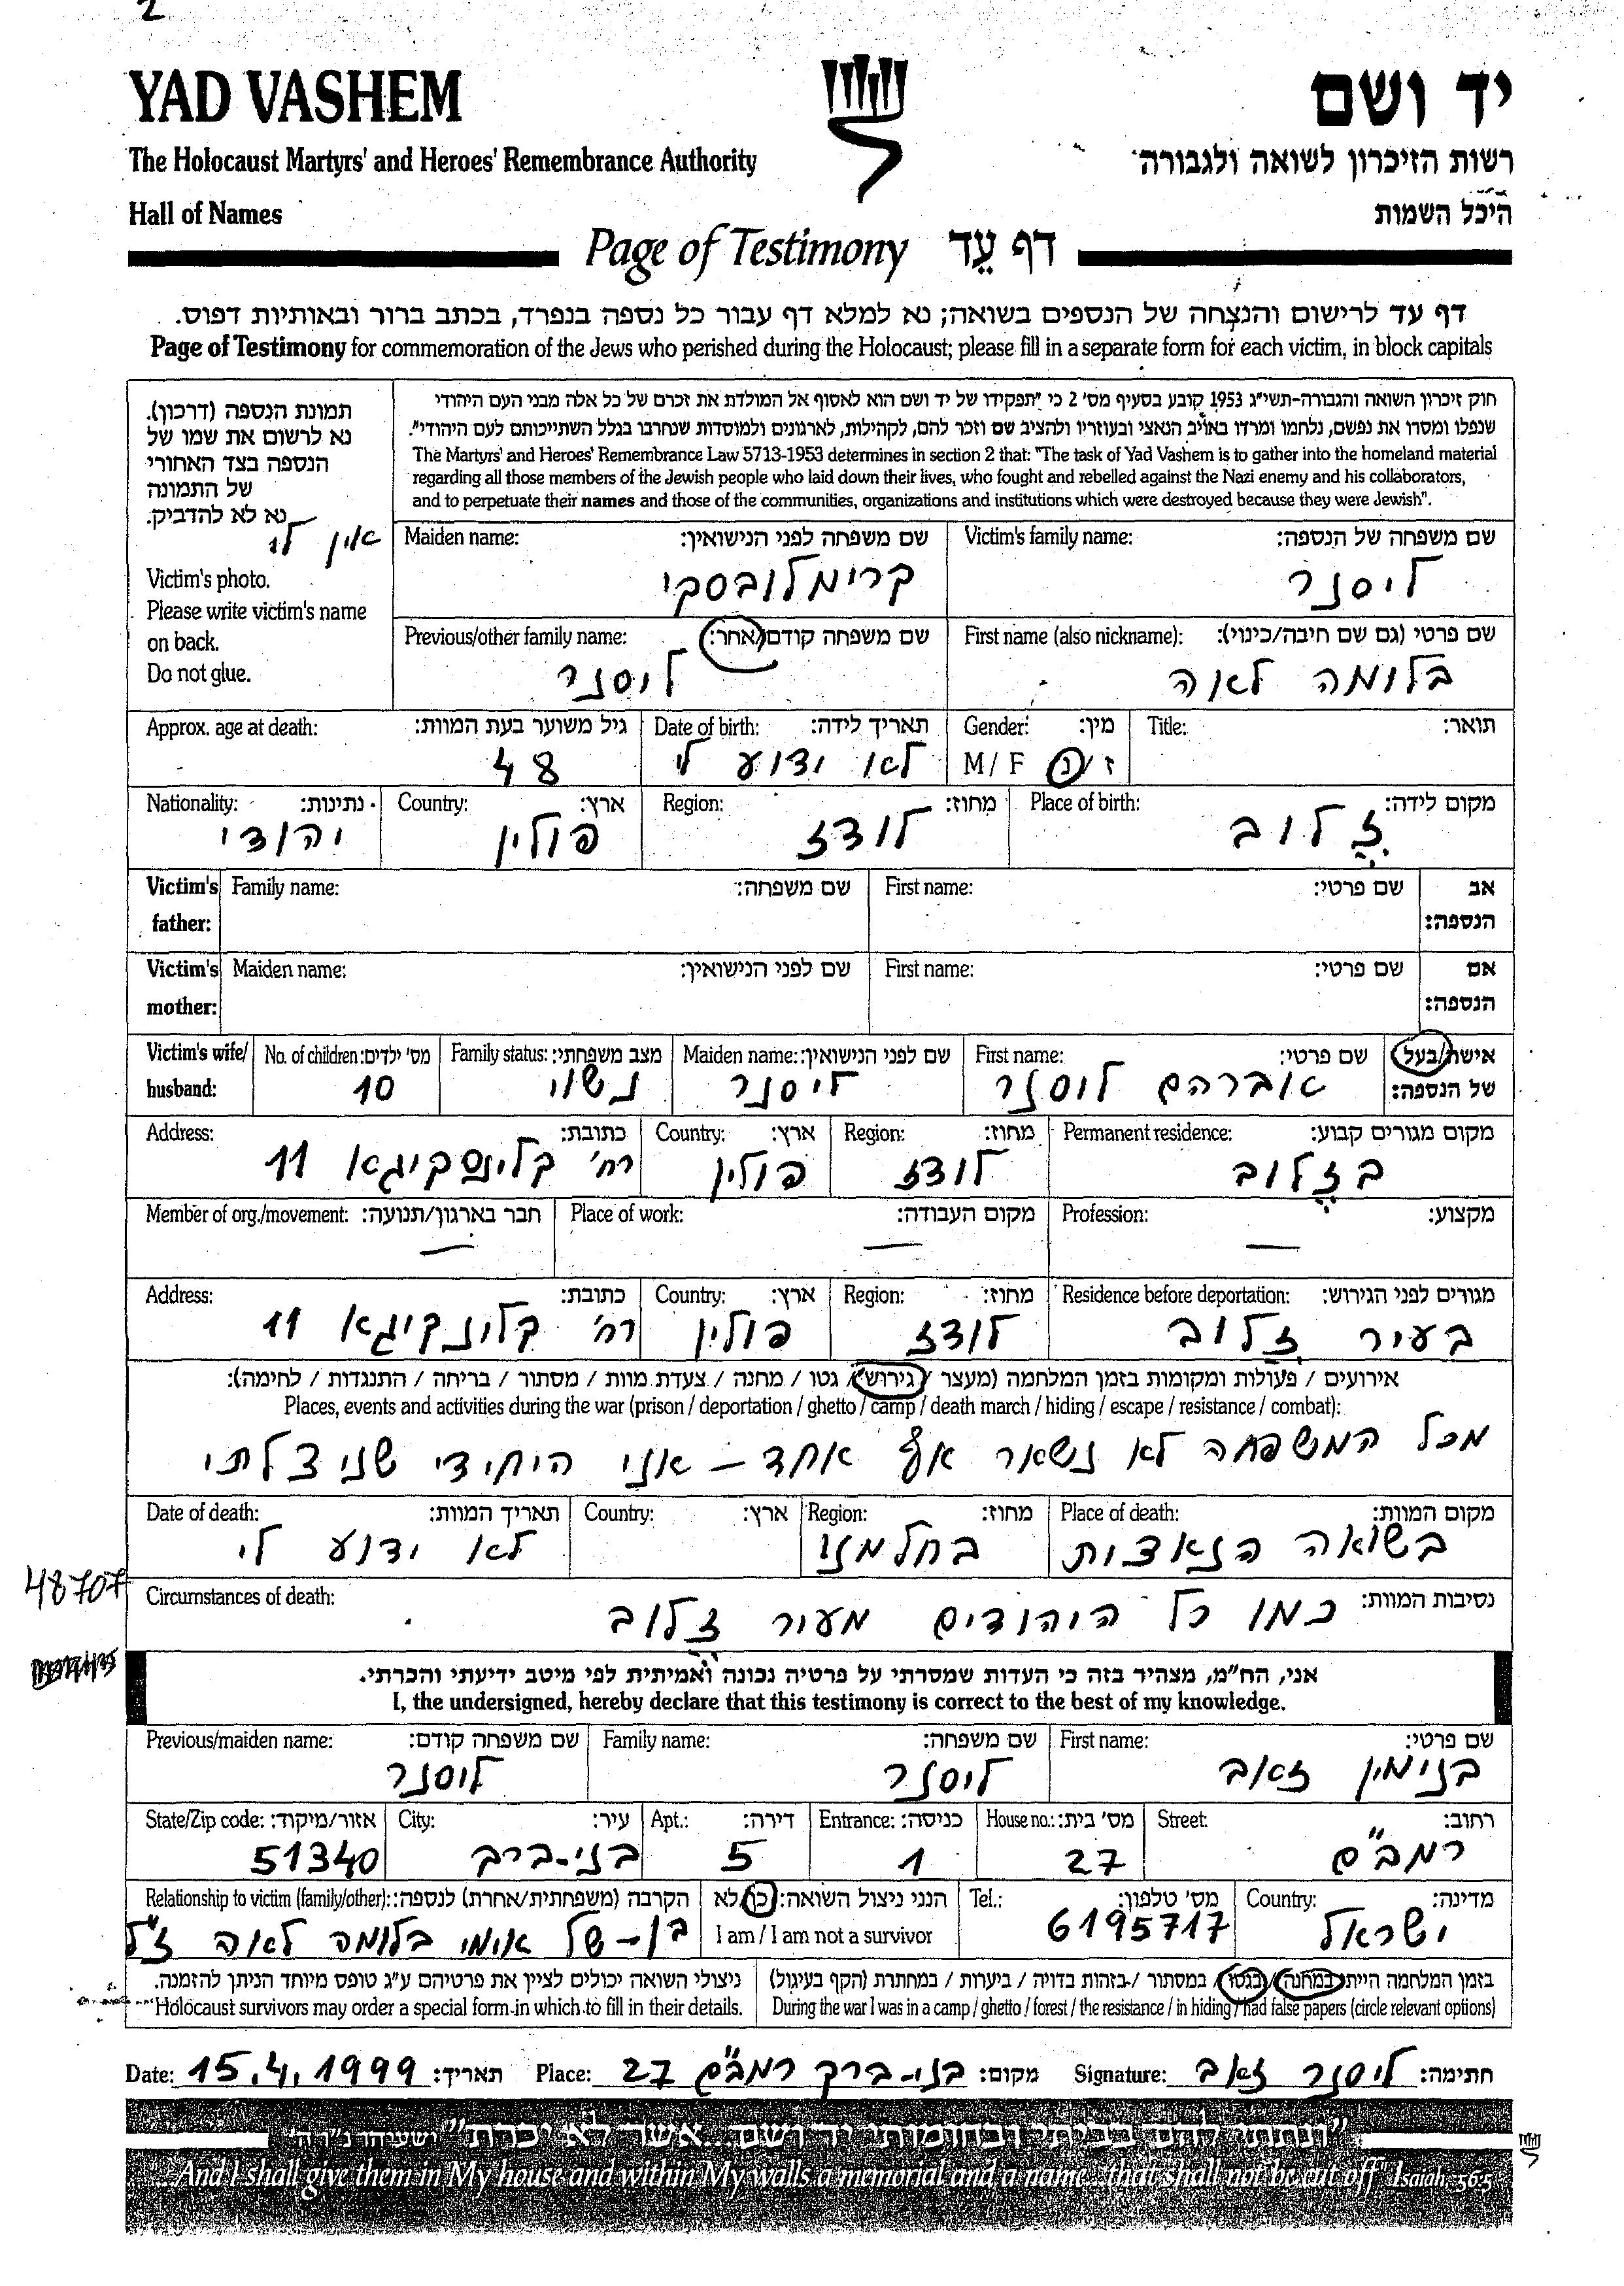 2
YAD VASHEM
יד ושם
The Holocaust Martyrs' and Heroes' Remembrance Authority
רשות הזיכרון לשואה ולגבורה
Hall of Names
היכל השמות
Page of Testimony דף עֵד
דף עד לרישום והנצחה של הנספים בשואה; נא למלא דף עבור כל נספה בנפרד, בכתב ברור ובאותיות דפוס.
Page of Testimony for commemoration of the Jews who perished during the Holocaust; please fill in a separate form for each victim, in block capitals
תמונת הנספה (דרכון).
נא לרשום את שמו של
הנספה בצד האחורי
של התמונה
נא לא להדביק.
אין לי
Victim's photo.
Please write victim's name
on back.
Do not glue.
חוק זיכרון השואה והגבורה-תשי"ג 1953 קובע בסעיף מס' 2 כי "תפקידו של יד ושם הוא לאסוף אל המולדת את זכרם של כל אלה מבני העם היהודי
שנפלו ומסרו את נפשם, נלחמו ומרדו באויב הנאצי ובעוזריו ולהציב שם וזכר להם, לקהילות, לארגונים ולמוסדות שנחרבו בגלל השתייכותם לעם היהודי".
The Martyrs' and Heroes' Remembrance Law 5713-1953 determines in section 2 that: "The task of Yad Vashem is to gather into the homeland material
regarding all those members of the Jewish people who laid down their lives, who fought and rebelled against the Nazi enemy and his collaborators,
and to perpetuate their names and those of the communities, organizations and institutions which were destroyed because they were Jewish".
שם משפחה של הנספה: Victim's family name:
ליסנר
שם משפחה לפני הנישואין: Maiden name:
קרימלובסקי
שם פרטי (גם שם חיבה/כינוי): First name (also nickname):
בלומה לאה
שם משפחה קודם/אחר: Previous/other family name:
ליסנר
תואר: Title:
מין: Gender:
ז/נ M/F
תאריך לידה: Date of birth:
לא ידוע לי
גיל משוער בעת המוות: Approx. age at death:
48
מקום לידה: Place of birth:
זלוב
מחוז: Region:
לודז
ארץ: Country:
פולין
נתינות: Nationality:
יהודי
אב הנספה: Victim's father:
שם פרטי: First name:
שם משפחה: Family name:
אם הנספה: Victim's mother:
שם פרטי: First name:
שם לפני הנישואין: Maiden name:
אישת/בעל של הנספה: Victim's wife/ husband:
שם פרטי: First name:
אברהם ליסנר
שם לפני הנישואין: Maiden name:
ליסנר
מצב משפחתי: Family status:
נשוי
מס' ילדים: No. of children:
10
מקום מגורים קבוע: Permanent residence:
בזלוב
מחוז: Region:
לודז
ארץ: Country:
פולין
כתובת: Address:
רח' קלינסקיגא 11
מקצוע: Profession:
—
מקום העבודה: Place of work:
—
חבר בארגון/תנועה: Member of org./movement:
—
מגורים לפני הגירוש: Residence before deportation:
בעיר זלוב
מחוז: Region:
לודז
ארץ: Country:
פולין
כתובת: Address:
רח' קלינקיגא 11
אירועים / פעולות ומקומות בזמן המלחמה (מעצר / גירוש / גטו / מחנה / צעדת מוות / מסתור / בריחה / התנגדות / לחימה):
Places, events and activities during the war (prison / deportation / ghetto / camp / death march / hiding / escape / resistance / combat):
מכל המשפחה לא נשאר אף אחד – אני היחידי שניצלתי
מקום המוות: Place of death:
בשואה הנאצית
מחוז: Region:
בחלמנו
ארץ: Country:
תאריך המוות: Date of death:
לא ידוע לי
48707
נסיבות המוות: Circumstances of death:
כמו כל היהודים מעיר זלוב
אני, הח"מ, מצהיר בזה כי העדות שמסרתי על פרטיה נכונה ואמיתית לפי מיטב ידיעתי והכרתי.
I, the undersigned, hereby declare that this testimony is correct to the best of my knowledge.
שם פרטי: First name:
בנימין זאב
שם משפחה: Family name:
ליסנר
שם משפחה קודם: Previous/maiden name:
ליסנר
רחוב: Street:
רמב"ם
מס' בית: House no.:
27
כניסה: Entrance:
1
דירה: Apt.:
5
עיר: City:
בני-ברק
אזור/מיקוד: State/Zip code:
51340
מדינה: Country:
ישראל
מס' טלפון: Tel.:
6195717
הנני ניצול השואה: כן/לא
I am / I am not a survivor
הקרבה (משפחתית/אחרת) לנספה: Relationship to victim (family/other):
בן – של אימי בלומה לאה ז"ל
בזמן המלחמה הייתי במחנה / בגטו / במסתור / בזהות בדויה / ביערות / במחתרת (הקף בעיגול)
During the war I was in a camp / ghetto / forest / the resistance / in hiding / had false papers (circle relevant options)
ניצולי השואה יכולים לציין את פרטיהם ע"ג טופס מיוחד הניתן להזמנה.
Holocaust survivors may order a special form in which to fill in their details.
חתימה: ליסנר זאב Signature:
מקום: בני-ברק רמב"ם 27 Place:
תאריך: 15.4.1999 Date:
"ונתתי להם בביתי ובחומותי יד ושם...אשר לא יכרת" ישעיהו נ"ו ה'
...And I shall give them in My house and within My walls a memorial and a name...that shall not be cut off" Isaiah 56:5